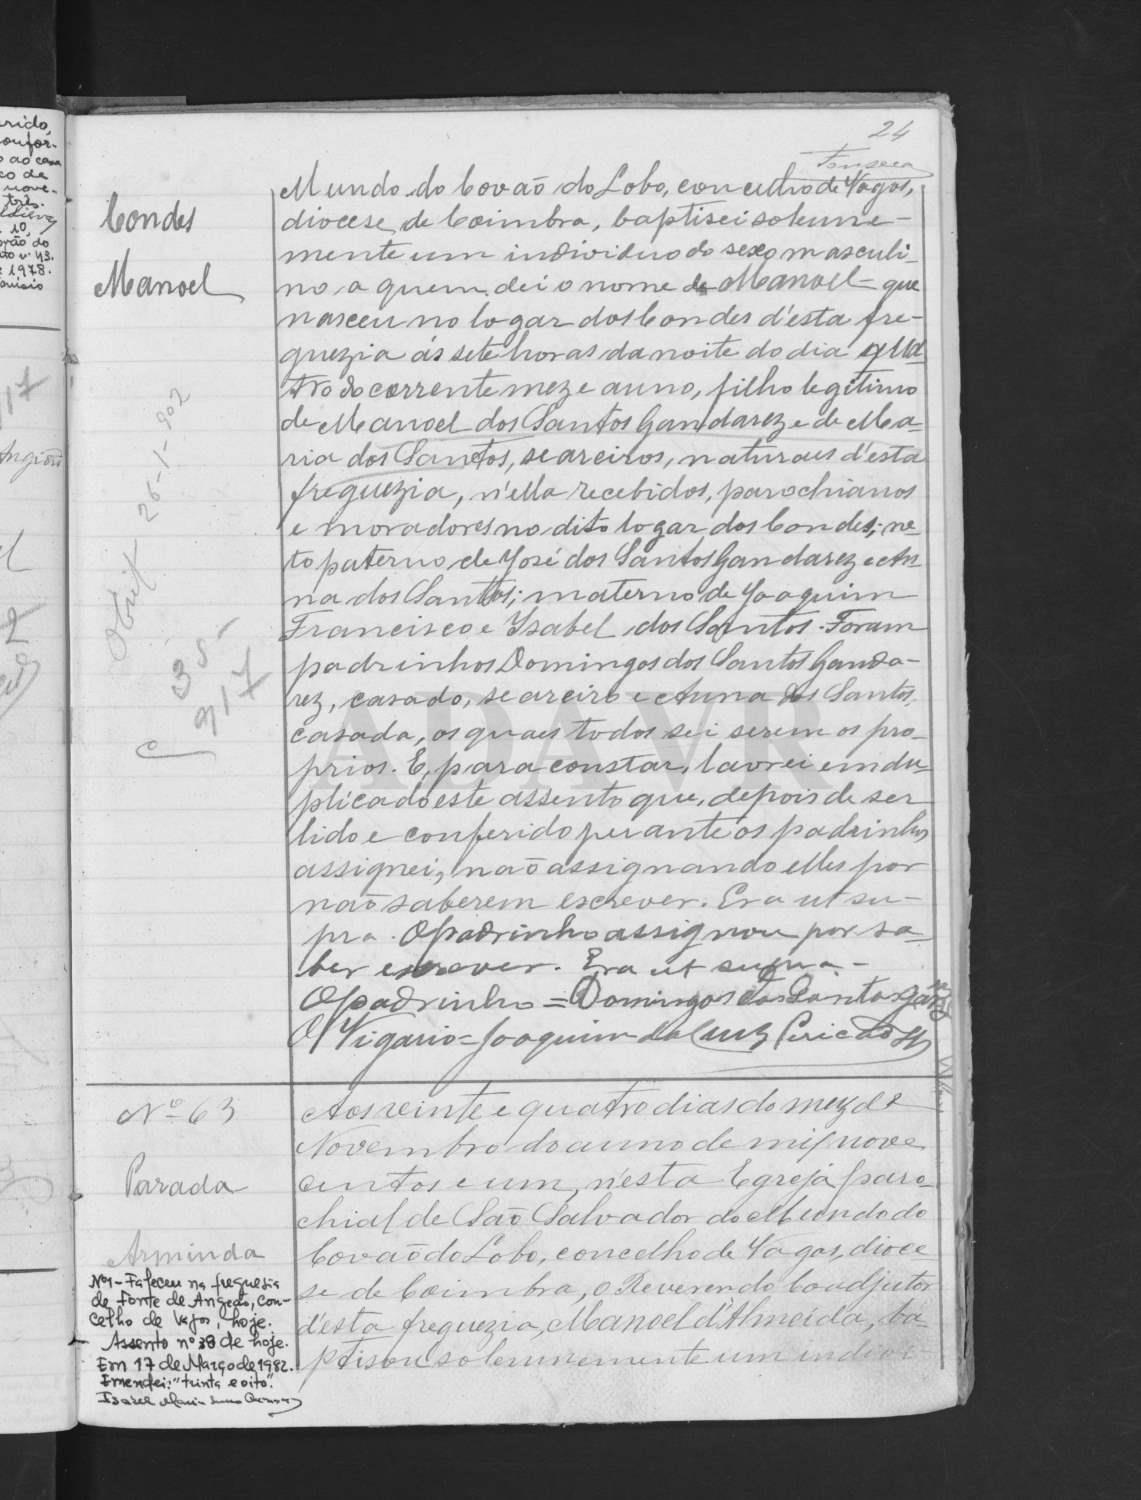 24
Fonseca
Condes
Manoel
Obiit 26-1-902
35-
917
Mundo do Covão do Lobo, concelho de Vagos,
diocese de Coimbra, baptisei solemne-
mente um individuo do sexo masculi-
no a quem dei o nome de Manoel - que
nasceu no logar dos Condes d'esta fre-
guezia ás sete horas da noite do dia qua-
tro do corrente mez e anno, filho legitimo
de Manoel dos Santos Gandarez e de Ma-
ria dos Santos, seareiros, naturaes d'esta
freguezia, n'ella recebidos, parochianos
e moradores no dito logar dos Condes; ne-
to paterno de José dos Santos Gandarez e An-
na dos Santos; materno de Joaquim
Francisco e Isabel dos Santos. Foram
padrinhos Domingos dos Santos Ganda-
rez, casado, seareiro e Anna dos Santos,
casada, os quaes todos sei serem os pro-
prios. E, para constar, lavrei em du-
plicado este assento que, depois de ser
lido e conferido perante os padrinhos,
assignei, não assignando elles por
não saberem escrever. Era ut su-
pra. O padrinho assignou por sa-
ber escrever. Era ut supra -
O padrinho = Domingos dos Santos
O Vigario = Joaquim da Cruz Pericão
Nº 63
Parada
Arminda
Nº1 - Faleceu na freguesia
de Fonte de Angeão, con-
celho de Vagos, hoje.
Assento nº 38 de hoje.
Em 17 de Março de 1982.
Emendei: "trinta e oito".
Aos vinte e quatro dias do mez de
Novembro do anno de mil nove
centos e um, n'esta Egreja paro-
chial de São Salvador do Mundo do
Covão do Lobo, concelho de Vagos, dioce
se de Coimbra, o Reverendo Coadjutor
d'esta freguezia, Manoel d'Almeida, ba-
ptisou solemnemente um indivi-
ADAVR